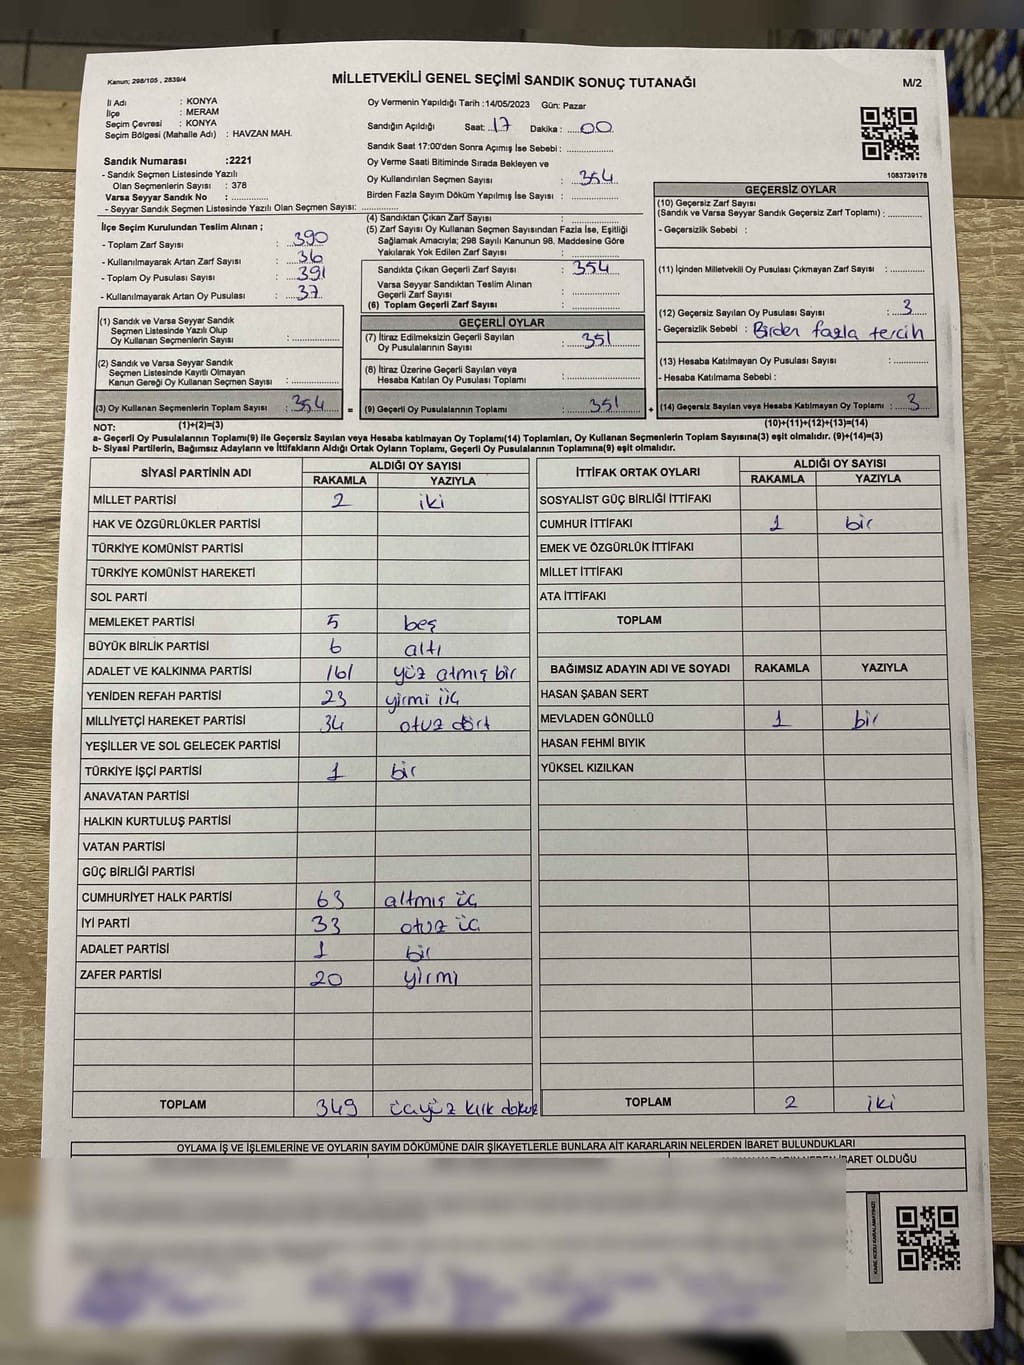 Kanun; 298/105 , 2839/4
MİLLETVEKİLİ GENEL SEÇİMİ SANDIK SONUÇ TUTANAĞI
M/2
İl Adı : KONYA
İlçe : MERAM
Seçim Çevresi : KONYA
Seçim Bölgesi (Mahalle Adı) : HAVZAN MAH.
Sandık Numarası :2221
- Sandık Seçmen Listesinde Yazılı
Olan Seçmenlerin Sayısı : 378
Varsa Seyyar Sandık No : ..............
- Seyyar Sandık Seçmen Listesinde Yazılı Olan Seçmen Sayısı: ..............
Oy Vermenin Yapıldığı Tarih :14/05/2023 Gün: Pazar
Sandığın Açıldığı Saat: 17 Dakika : 00
Sandık Saat 17:00'den Sonra Açımış İse Sebebi : ..............
Oy Verme Saati Bitiminde Sırada Bekleyen ve
Oy Kullandırılan Seçmen Sayısı : 354
Birden Fazla Sayım Döküm Yapılmış İse Sayısı : ..............
1083739178
İlçe Seçim Kurulundan Teslim Alınan ;
- Toplam Zarf Sayısı : 390
- Kullanılmayarak Artan Zarf Sayısı : 36
- Toplam Oy Pusulası Sayısı : 391
- Kullanılmayarak Artan Oy Pusulası : 37
(1) Sandık ve Varsa Seyyar Sandık
Seçmen Listesinde Yazılı Olup
Oy Kullanan Seçmenlerin Sayısı : ..............
(2) Sandık ve Varsa Seyyar Sandık
Seçmen Listesinde Kayıtlı Olmayan
Kanun Gereği Oy Kullanan Seçmen Sayısı : ..............
(3) Oy Kullanan Seçmenlerin Toplam Sayısı : 354
(1)+(2)=(3)
(4) Sandıktan Çıkan Zarf Sayısı : ..............
(5) Zarf Sayısı Oy Kullanan Seçmen Sayısından Fazla İse, Eşitliği
Sağlamak Amacıyla; 298 Sayılı Kanunun 98. Maddesine Göre
Yakılarak Yok Edilen Zarf Sayısı : ..............
Sandıkta Çıkan Geçerli Zarf Sayısı : 354
Varsa Seyyar Sandıktan Teslim Alınan
Geçerli Zarf Sayısı : ..............
(6) Toplam Geçerli Zarf Sayısı : ..............
GEÇERLİ OYLAR
(7) İtiraz Edilmeksizin Geçerli Sayılan
Oy Pusulalarının Sayısı : 351
(8) İtiraz Üzerine Geçerli Sayılan veya
Hesaba Katılan Oy Pusulası Toplamı : ..............
= (9) Geçerli Oy Pusulalarının Toplamı : 351 +
GEÇERSİZ OYLAR
(10) Geçersiz Zarf Sayısı
(Sandık ve Varsa Seyyar Sandık Geçersiz Zarf Toplamı) : ..............
- Geçersizlik Sebebi :
(11) İçinden Milletvekili Oy Pusulası Çıkmayan Zarf Sayısı : ..............
(12) Geçersiz Sayılan Oy Pusulası Sayısı : 3
- Geçersizlik Sebebi : Birden fazla tercih
(13) Hesaba Katılmayan Oy Pusulası Sayısı : ..............
- Hesaba Katılmama Sebebi :
(14) Geçersiz Sayılan veya Hesaba Katılmayan Oy Toplamı : 3
(10)+(11)+(12)+(13)=(14)
NOT:
a- Geçerli Oy Pusulalarının Toplamı(9) ile Geçersiz Sayılan veya Hesaba katılmayan Oy Toplamı(14) Toplamları, Oy Kullanan Seçmenlerin Toplam Sayısına(3) eşit olmalıdır. (9)+(14)=(3)
b- Siyasi Partilerin, Bağımsız Adayların ve İttifakların Aldığı Oyların Toplamı, Geçerli Oy Pusulalarının Toplamına(9) eşit olmalıdır.
SİYASİ PARTİNİN ADI ALDIĞI OY SAYISI
RAKAMLA YAZIYLA
MİLLET PARTİSİ 2 iki
HAK VE ÖZGÜRLÜKLER PARTİSİ
TÜRKİYE KOMÜNİST PARTİSİ
TÜRKİYE KOMÜNİST HAREKETİ
SOL PARTİ
MEMLEKET PARTİSİ 5 beş
BÜYÜK BİRLİK PARTİSİ 6 altı
ADALET VE KALKINMA PARTİSİ 161 yüz atmış bir
YENİDEN REFAH PARTİSİ 23 yirmi üç
MİLLİYETÇİ HAREKET PARTİSİ 34 otuz dört
YEŞİLLER VE SOL GELECEK PARTİSİ
TÜRKİYE İŞÇİ PARTİSİ 1 bir
ANAVATAN PARTİSİ
HALKIN KURTULUŞ PARTİSİ
VATAN PARTİSİ
GÜÇ BİRLİĞİ PARTİSİ
CUMHURİYET HALK PARTİSİ 63 altmış üç
İYİ PARTİ 33 otuz üç
ADALET PARTİSİ 1 bir
ZAFER PARTİSİ 20 yirmi
TOPLAM 349 üçyüz kırk dokuz
İTTİFAK ORTAK OYLARI ALDIĞI OY SAYISI
RAKAMLA YAZIYLA
SOSYALİST GÜÇ BİRLİĞİ İTTİFAKI
CUMHUR İTTİFAKI 1 bir
EMEK VE ÖZGÜRLÜK İTTİFAKI
MİLLET İTTİFAKI
ATA İTTİFAKI
TOPLAM
BAĞIMSIZ ADAYIN ADI VE SOYADI RAKAMLA YAZIYLA
HASAN ŞABAN SERT
MEVLADEN GÖNÜLLÜ 1 bir
HASAN FEHMİ BIYIK
YÜKSEL KIZILKAN
TOPLAM 2 iki
OYLAMA İŞ VE İŞLEMLERİNE VE OYLARIN SAYIM DÖKÜMÜNE DAİR ŞİKAYETLERLE BUNLARA AİT KARARLARIN NELERDEN İBARET BULUNDUKLARI
İBARET OLDUĞU
KARE KODU KARALAMAYINIZ!